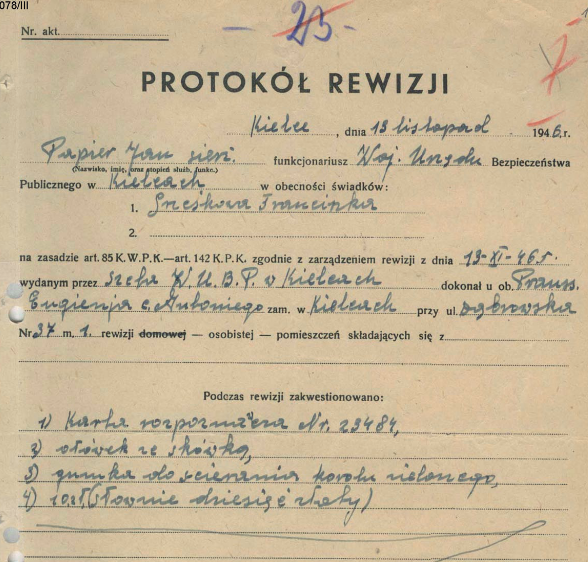 078/III
Nr. akt.
23
7
PROTOKÓŁ REWIZJI
Kielce, dnia 13 listopad 1946.r.
Papier Jan sierż. funkcjonariusz Woj. Urzędu Bezpieczeństwa
(Nazwisko, imię, oraz stopień służb. funkc.)
Publicznego w Kielcach w obecności świadków:
1. Franciszka
2.
na zasadzie art. 85 K.W.P.K.—art. 142 K.P.K. zgodnie z zarządzeniem rewizji z dnia 13-XI-46r.
wydanym przez Szefa W.U.B.P. w Kielcach dokonał u ob. Prauss.
Eugienja c. Antoniego zam. w Kielcach przy ul. Dąbrowska
Nr 37 m. 1. rewizji domowej — osobistej — pomieszczeń składających się z
Podczas rewizji zakwestionowano:
1) Karta rozpoznawcza Nr. 23484,
2) ołówek ze skówką,
3) gumka do ścierania koloru zielonego,
4) 10 zł. (słownie dziesięć złoty)